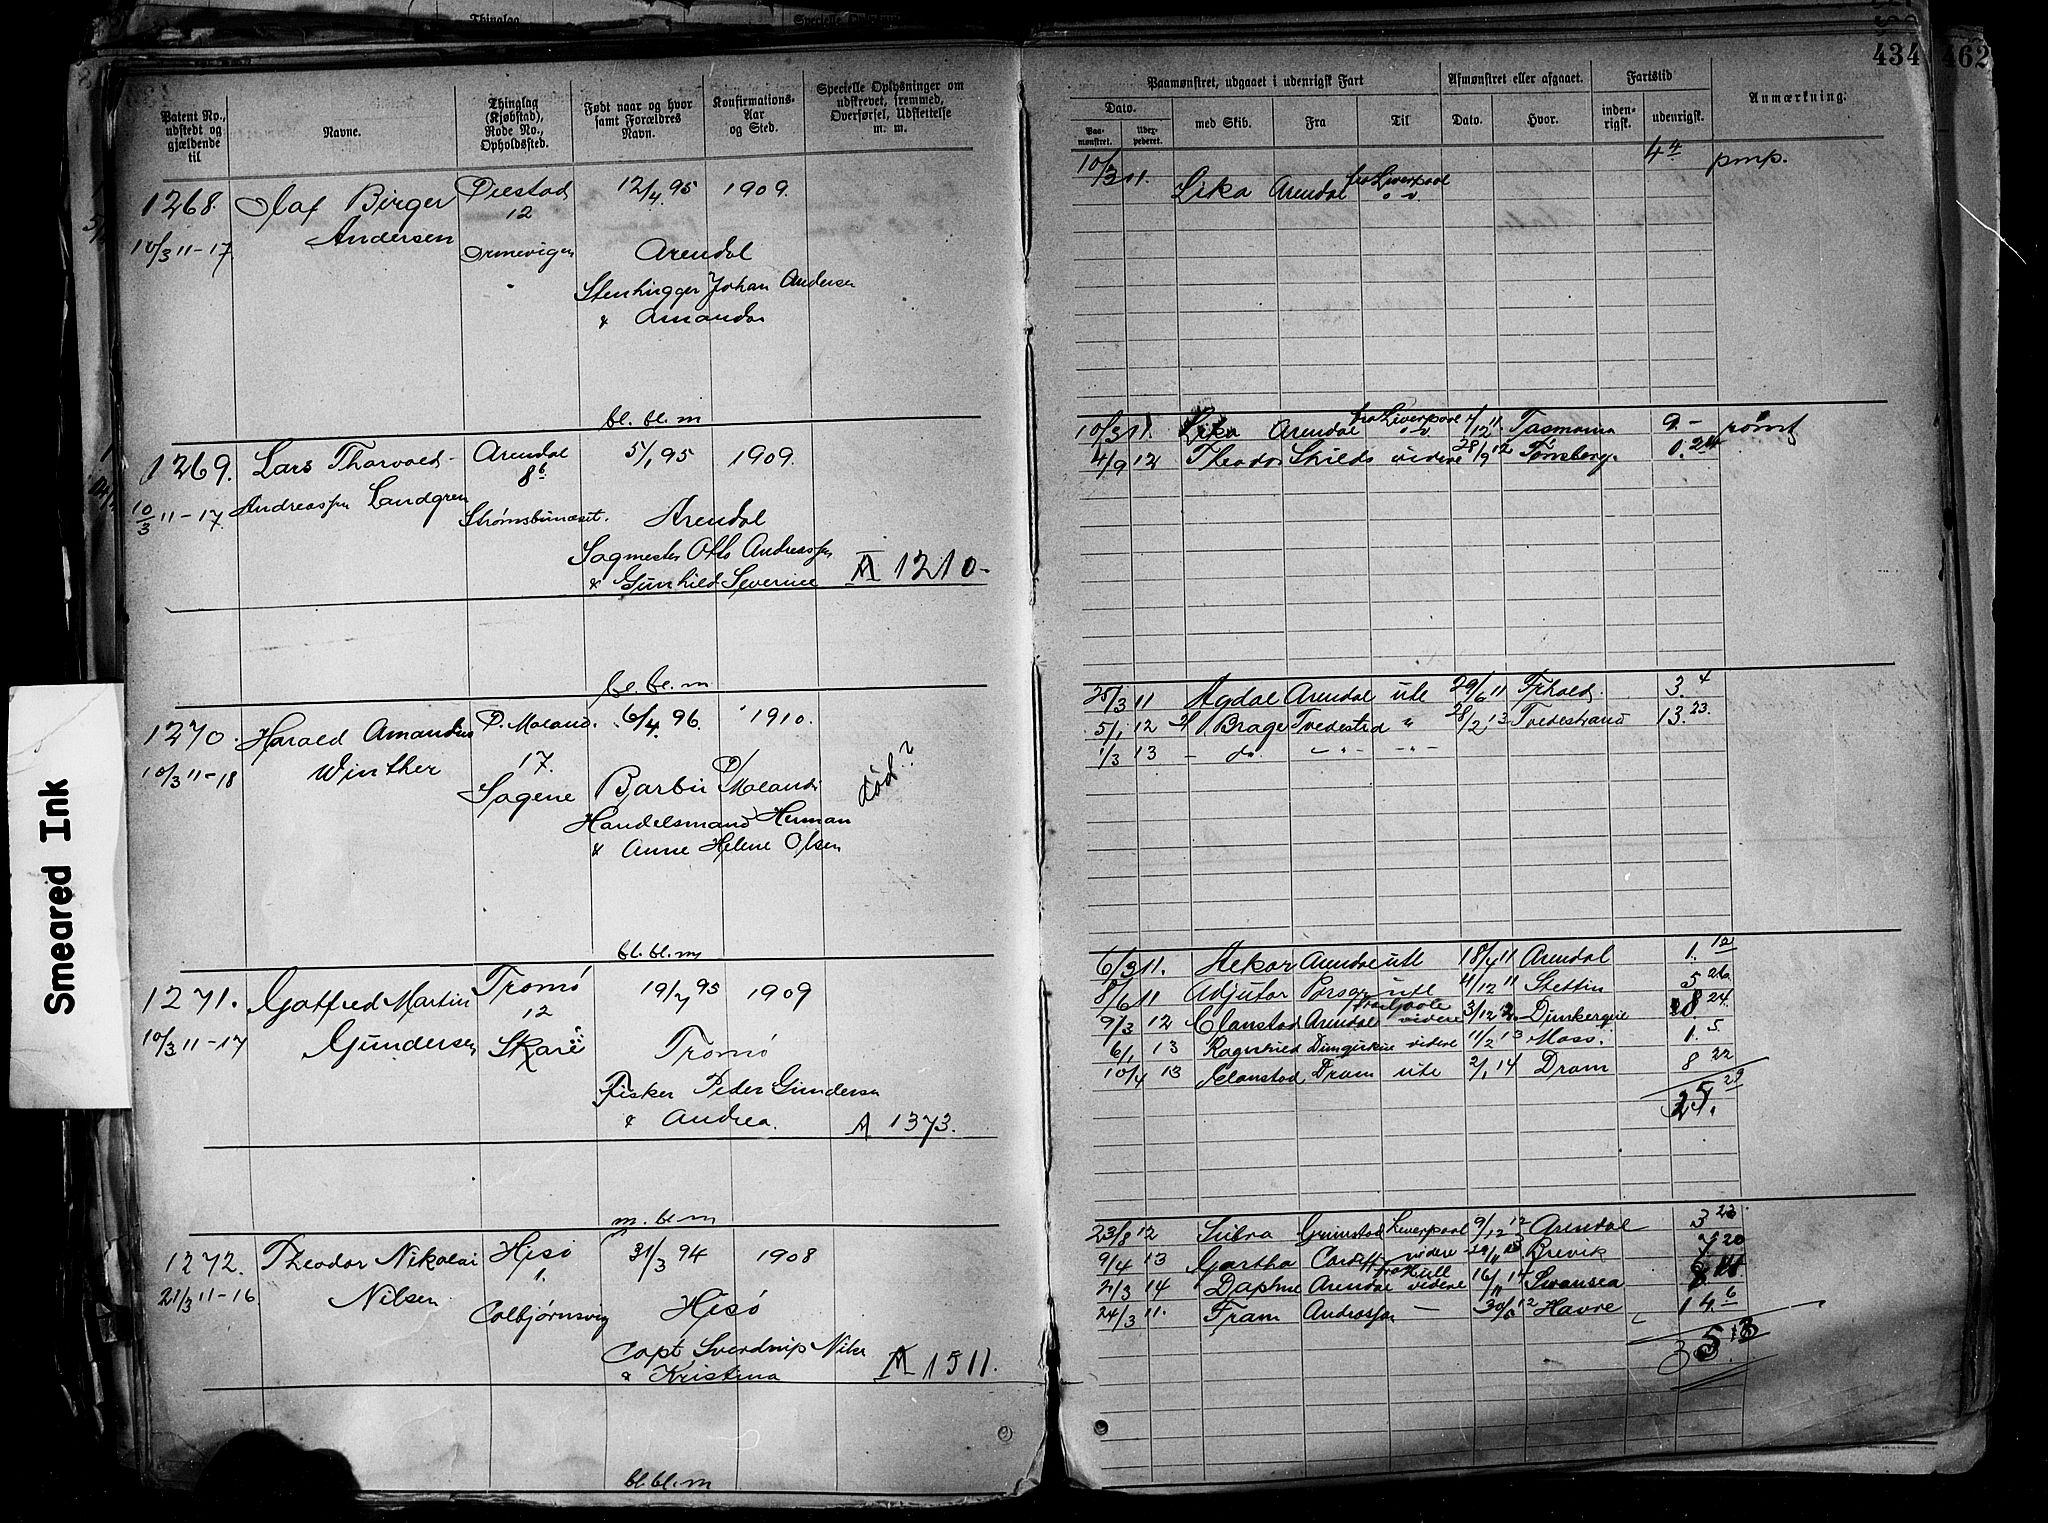 434
462
Patent No., udstedt og gjældende til
Navne.
Thinglag (Kjøbstad), Rode No., Opholdssted.
Født naar og hvor samt Forældres Navn.
Konfirmations-Aar og Sted.
Specielle Oplysninger om udskrevet, fremmed, Overførsel, Udslettelse m. m.
Paamønstret, udgaaet i udenrigsk Fart
Afmønstret eller afgaaet.
Fartstid
Anmærkning.
Dato.
Paa-mønstret.
med Skib.
Fra
Til
Dato.
Hvor.
inden-rigsk.
udenrigsk.
1268. Olaf Birger 12/4 95 1909.
Andersen 12
10/3 11-17 Ormevigen Arendal
Stenhugger Johan Andersen
& Amanda
bl. bl. m
10/3 11. Lika Arendal fra Liverpool 4 4 pmp.
1269. Lars Thorvald Arendal 5/1 95 1909.
Andreassen Landgren 8 b
10/3 11-17 Strømsbunæset. Arendal
Sagmester Otto Andreassen
& Gunhild Severine A 1210-
bl. bl. m
10/3 11. Lika Arendal fra Liverpool Tasmania 9 - rømt
4/9 12 Theodor Skilds videre 28/9 12 Tønsberg. 0. 24
1270. Harald Amandus Ø. Moland. 6/4 96 1910.
Winther 17.
10/3 11-18 Sagene Barbu Ø/Moland
død?
Handelsmand Herman
& Anne Helene Olsen
bl. bl. m
25/3 11 Agdal Arendal ute 29/6 11 3. 4
5/1 12 Brage Tvedestrd " 28/2 13 Tvedestrand 13. 23.
1/3 13 - do. - " - - " -
1271. Gotfred Martin Tromø 19/7 95 1909
Gundersen 12
10/3 11-17 Skare Tromø
Fisker Peder Gundersen
& Andrea. A 1373.
m. bl. m
6/3 11. Hekar Arendal ute 18/4 11 Arendal 1. 12
8/6 11 Adjutor Porsgr ute 4/12 11 Stettin 5 26.
9/3 12 Arendal videre 3/12 12 Dunkerque 8 24.
6/1 13 Ragnhild videre 11/2 13 Moss. 1. 5
10/4 13 Dram ute 2/1 14 Dram 8 22
25. 29
1272. Theodor Nikolai Hisø 31/3 94 1908
Nilsen 1.
21/3 11-16 Colbjørnsvig Hisø
Capt Sverdrup Nilsen
& Kristina A 1511.
bl. bl. m
23/8 12 Grimstad Liverpool 9/12 12 Arendal 3 23.
9/4 13 Gartha Cardiff videre Brevik 7 20
2/3 14 Daphne Arendal fra Hull videre 16/11 14 Swansea 8
24/3 11. Fram - 30/6 12 Havre 14. 6
35 13
Smeared Ink